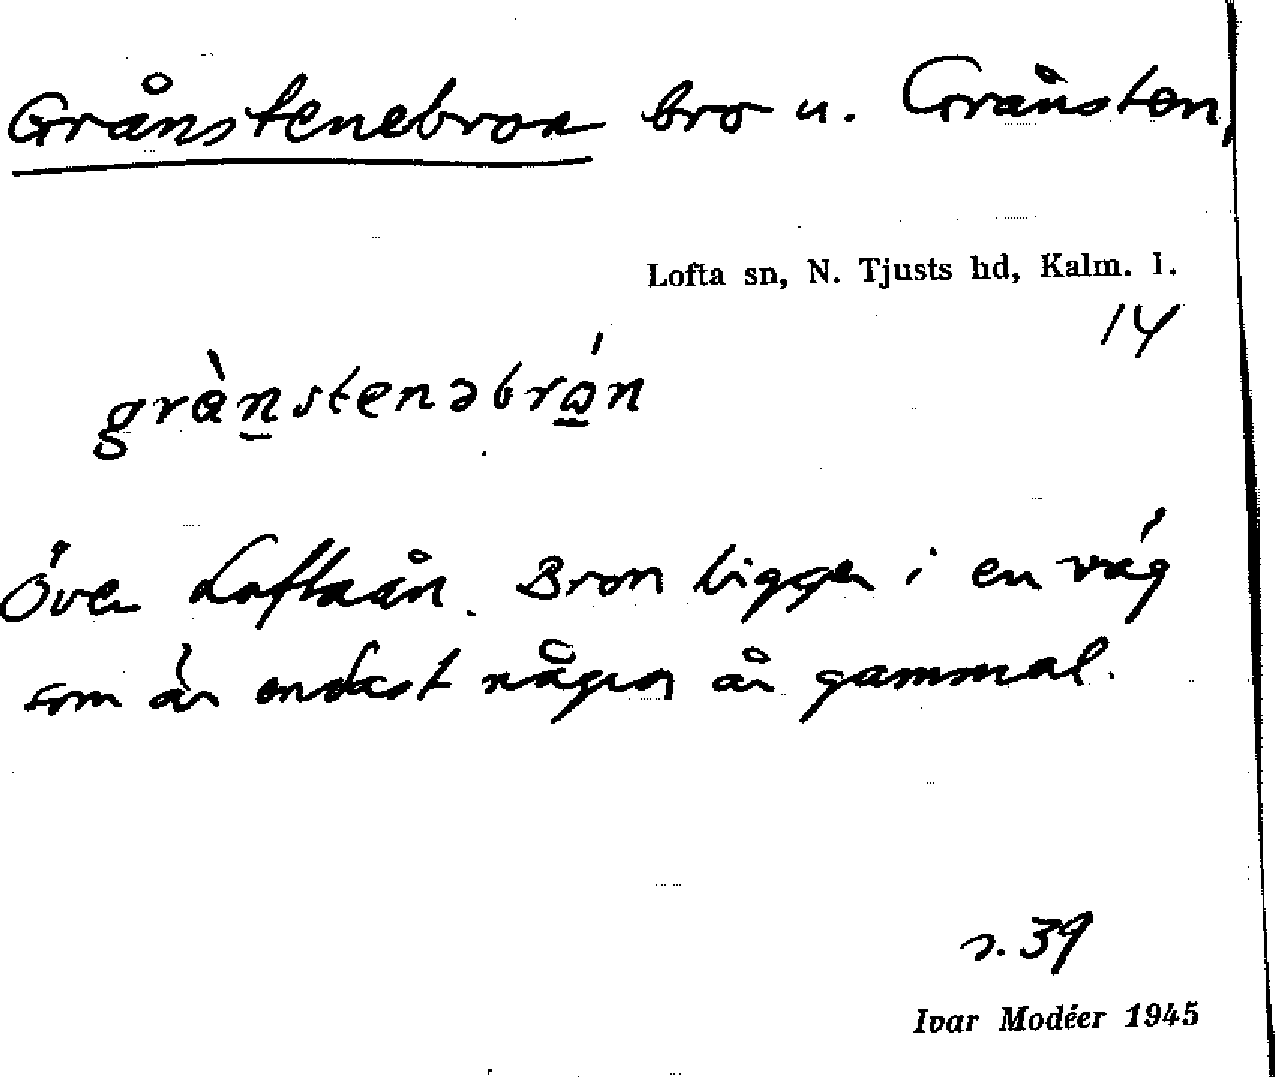 Grånstenebron bro u. Grånsten,
Lofta sn, N. Tjusts hd, Kalm. l.
14
grànstenəbrón
Över Loftaån. Bron ligger i en väg
som är endast någon år gammal.
s. 39
Ivar Modéer 1945